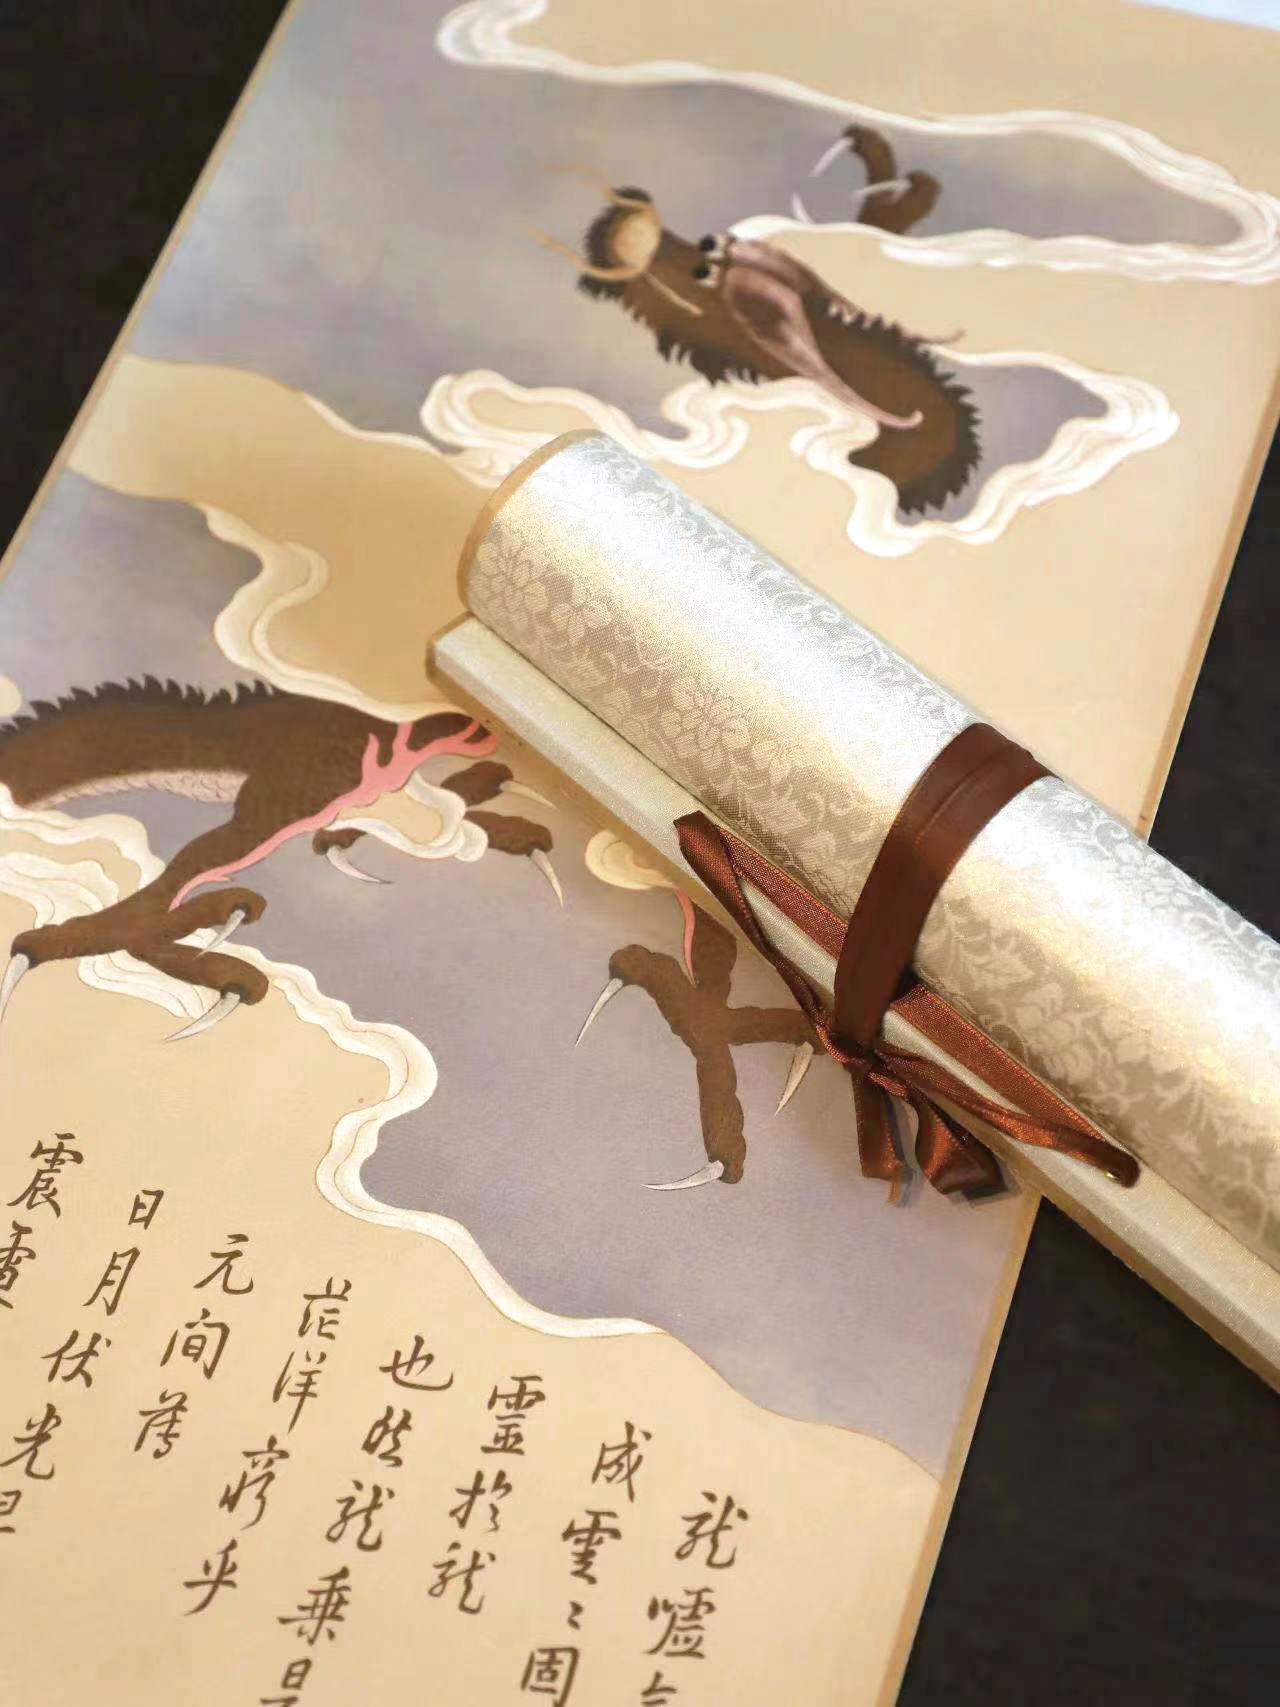 龍噓
成雲〻固
靈於龍
也然龍乘
茫洋窮乎
元間薄
日月伏光
震電